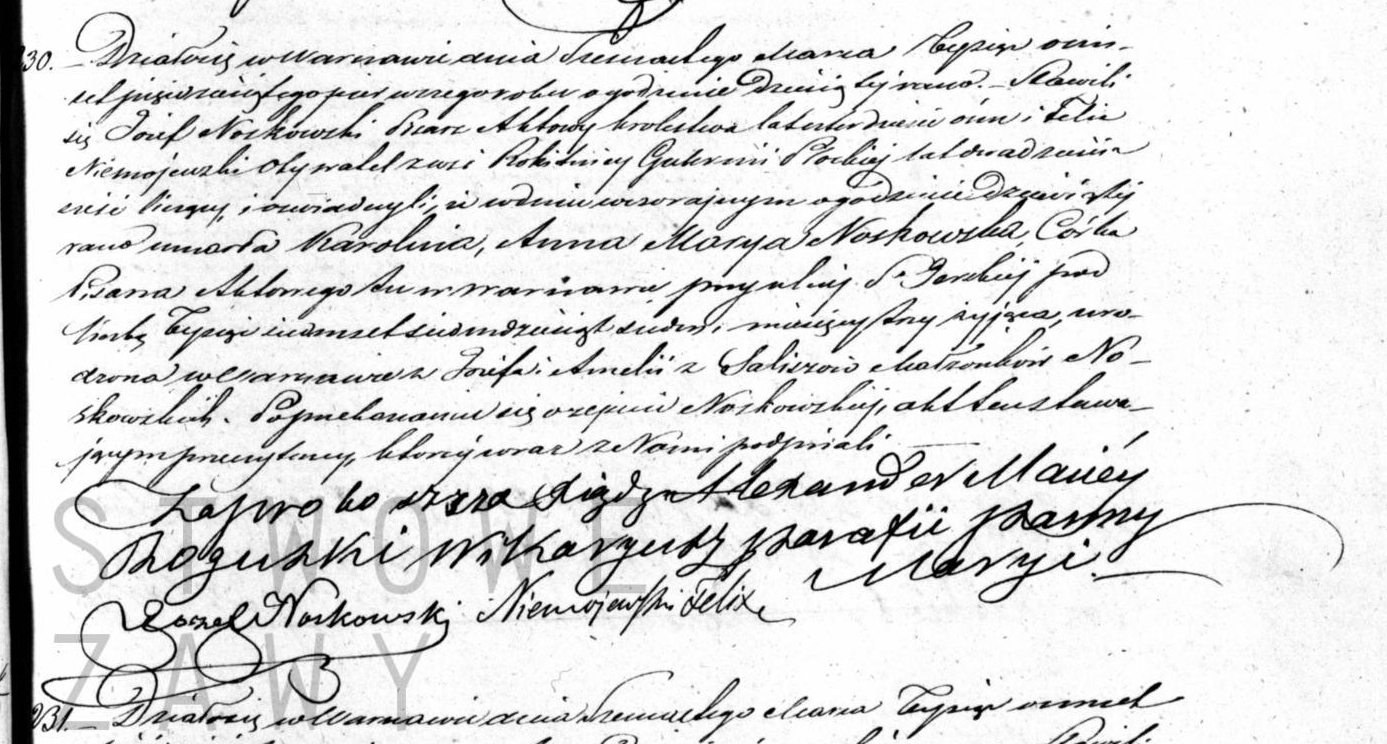 230. Działo się w Warszawie dnia Szesnastego Marca Tysiąc ośm-
set pięćdziesiątego pierwszego roku o godzinie Dziesiątej rano. – Stawili
się Józef Noskowski Pisarz Aktowy Królestwa lat czterdzieści ośm i Felix
Niemojewski Obywatel z wsi Rokitnicy Gubernii Płockiej lat dwadzieścia
sześć liczący, i oświadczyli, że w dniu wczorajszym o godzinie Dziewiątej
rano umarła Karolina, Anna Marya Noskowska, Córka
Pisarza Aktowego tu w Warszawie przy ulicy S. Jerskiej pod
liczbą Tysiąc siedmset siedmdziesiąt siedm, miesięcy trzy żyjąca, uro-
dzona w Warszawie z Józefa i Amelii z Saliszów Małżonków No-
skowskich. Po przekonaniu się o zejściu Noskowskiej, akt ten stawa-
jącym przeczytany, którzy wraz z Nami podpisali
Za proboszcza Xiądz Alexander Maciéj
Roguski Wikaryusz parafii Panny
Maryi
Józef Noskowski Niemojewski Felix
STWOWE
ZAWY
231. – Działo się w Warszawie dnia Szesnastego Marca Tysiąc ośmset
Stawili